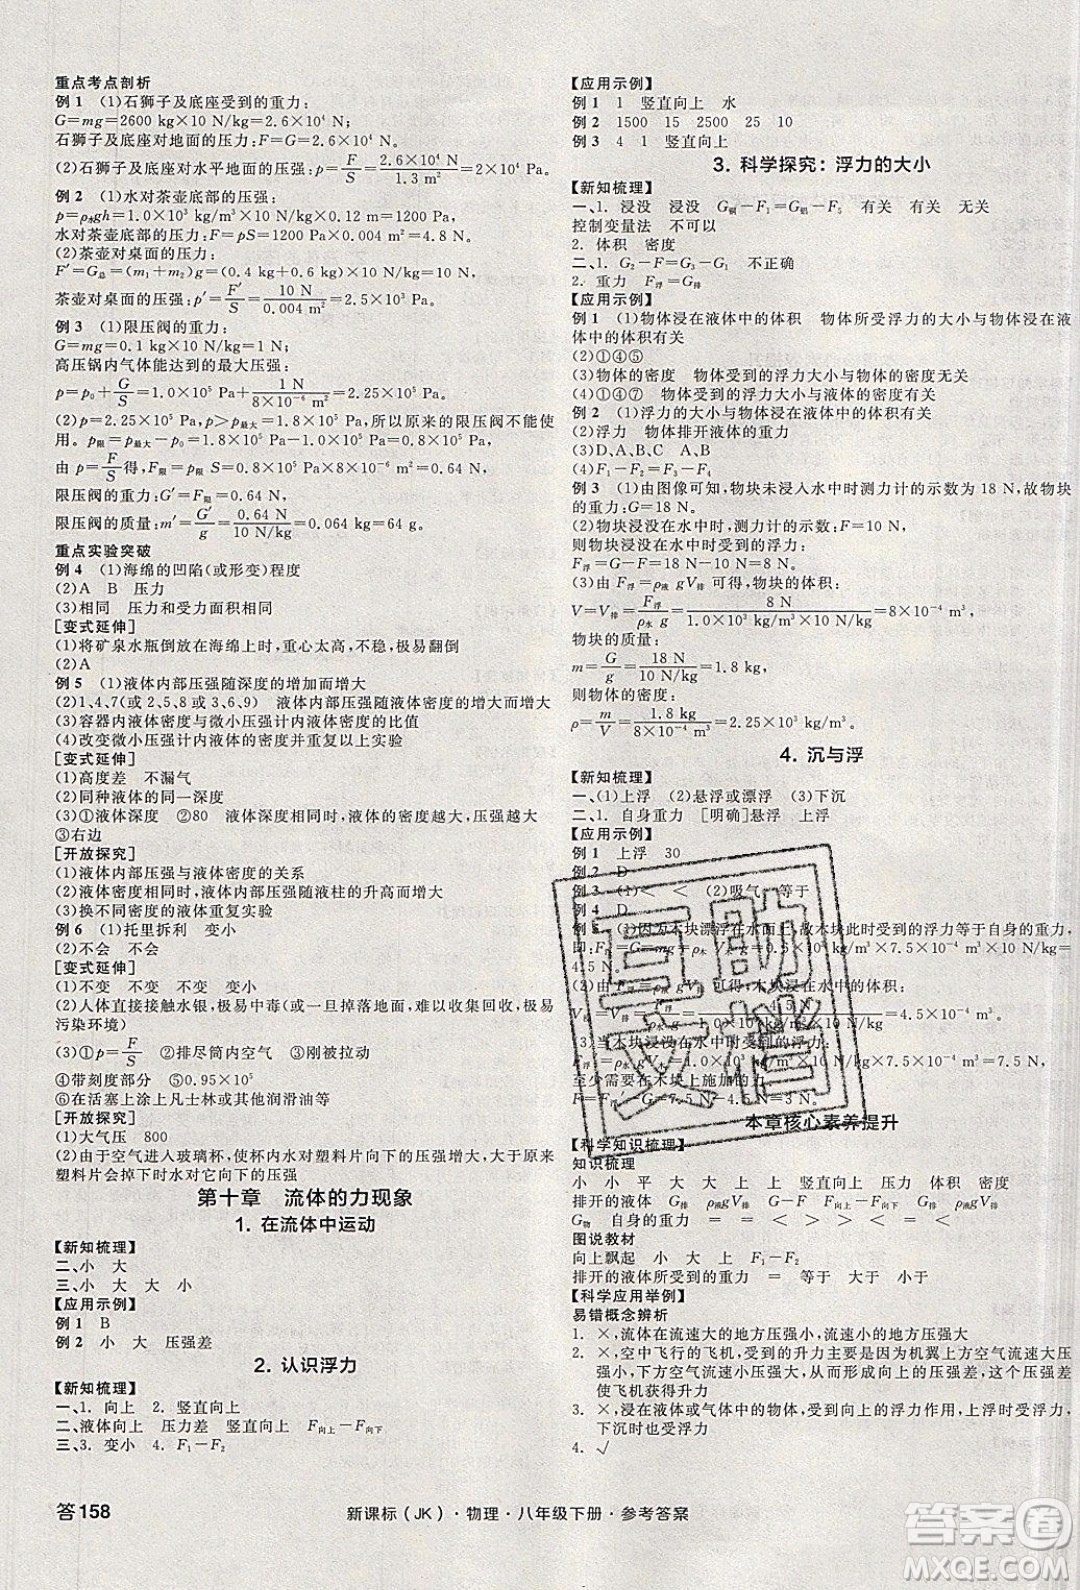 重点考点剖析
例 1　(1)石狮子及底座受到的重力:
G=mg=2600 kg×10 N/kg=2.6×10⁴ N;
石狮子及底座对地面的压力:F=G=2.6×10⁴ N;
(2)石狮子及底座对水平地面的压强:p=F/S=2.6×10⁴ N/1.3 m²=2×10⁴ Pa。
例 2　(1)水对茶壶底部的压强:
p=ρ水gh=1.0×10³ kg/m³×10 N/kg×0.12 m=1200 Pa;
水对茶壶底部的压力:F=pS=1200 Pa×0.004 m²=4.8 N。
(2)茶壶对桌面的压力:
F′=G总=(m₁+m₂)g=(0.4 kg+0.6 kg)×10 N/kg=10 N,
茶壶对桌面的压强:p′=F′/S=10 N/0.004 m²=2.5×10³ Pa。
例 3　(1)限压阀的重力:
G=mg=0.1 kg×10 N/kg=1 N;
高压锅内气体能达到的最大压强:
p=p₀+G/S=1.0×10⁵ Pa+1 N/8×10⁻⁶ m²=2.25×10⁵ Pa。
(2)p=2.25×10⁵ Pa>p最大=1.8×10⁵ Pa,所以原来的限压阀不能使
用。p限=p最大-p₀=1.8×10⁵ Pa-1.0×10⁵ Pa=0.8×10⁵ Pa,
由 p=F/S得,F限=p限 S=0.8×10⁵ Pa×8×10⁻⁶ m²=0.64 N,
限压阀的重力:G′=F限=0.64 N,
限压阀的质量:m′=G′/g=0.64 N/10 N/kg=0.064 kg=64 g。
重点实验突破
例 4　(1)海绵的凹陷(或形变)程度
(2)A　B　压力
(3)相同　压力和受力面积相同
[变式延伸]
(1)将矿泉水瓶倒放在海绵上时,重心太高,不稳,易倾倒
(2)A
例 5　(1)液体内部压强随深度的增加而增大
(2)1、4、7(或 2、5、8 或 3、6、9)　液体内部压强随液体密度的增大而增大
(3)容器内液体密度与微小压强计内液体密度的比值
(4)改变微小压强计内液体的密度并重复以上实验
[变式延伸]
(1)高度差　不漏气
(2)同种液体的同一深度
(3)①液体深度　②80　液体深度相同时,液体密度越大,压强越大
③右边
[开放探究]
(1)液体内部压强与液体密度的关系
(2)液体密度相同时,液体内部压强随液柱的升高而增大
(3)换不同密度的液体重复实验
例 6　(1)托里拆利　变小
(2)不会　不会
[变式延伸]
(1)不变　不变　不变　变小
(2)人体直接接触水银,极易中毒(或一旦掉落,难以收集回收,极易
污染环境)
(3)①p=F/S　②排尽筒内空气　③刚被拉动
④带刻度部分　⑤0.95×10⁵
⑥在活塞上涂上凡士林或其他润滑油等
[开放探究]
(1)大气压　800
(2)由于空气进入玻璃杯,使杯内水对塑料片向下的压强增大,水和
塑料片会掉下时水对它向下的压强
第十章　流体的力现象
1. 在流体中运动
【新知梳理】
二、小　大
三、小　大　大　小
【应用示例】
例 1　B
例 2　小　大　压强差
2. 认识浮力
【新知梳理】
一、1. 向上　2. 竖直向上
二、液体向上　压力差　竖直向上　F向上-F向下
三、3. 变小　4. F₁-F₂
【应用示例】
例 1　1　竖直向上　水
例 2　1500　15　2500　25　10
例 3　4　1　竖直向上
3. 科学探究:浮力的大小
【新知梳理】
一、1. 浸没　浸没　G铜-F₁=G铝-F₅　有关　有关　无关
控制变量法　不可以
2. 体积　密度
二、1. G₂-F=G₃-G₁　不正确
2. 重力　F浮=G排
【应用示例】
例 1　(1)物体浸在液体中的体积　物体所受浮力的大小与物体浸在液
体中的体积有关
(2)①④⑤
(3)物体的密度　物体受到的浮力大小与物体的密度无关
(4)①④⑦　物体受到的浮力大小与液体的密度有关
例 2　(1)浮力的大小与物体浸在液体中的体积有关
(2)浮力　物体排开液体的重力
(3)D、A、B、C　A、B
(4)F₁-F₂=F₃-F₄
例 3　(1)由图像可知,物块未浸入水中时测力计的示数为 18 N,故物块
的重力:G=18 N。
(2)物块浸没在水中时,测力计的示数:F=10 N,
则物块浸没在水中时受到的浮力:
F浮=G-F=18 N-10 N=8 N。
(3)由 F浮=ρ液 gV排 可得,物块的体积:
V=V排=F浮/ρ水 g=8 N/1.0×10³ kg/m³×10 N/kg=8×10⁻⁴ m³,
物块的质量:
m=G/g=18 N/10 N/kg=1.8 kg,
则物体的密度:
ρ=m/V=1.8 kg/8×10⁻⁴ m³=2.25×10³ kg/m³。
4. 沉与浮
【新知梳理】
一、(1)上浮　(2)悬浮或漂浮　(3)下沉
二、1. 自身重力　[明确]悬浮　上浮
【应用示例】
例 1　上浮　30
例 2　D
例 3　(1)<　<　(2)吸气　等于
例 4　D
例 5　(1)因为木块漂浮在水面上,故木块此时受到的浮力等于自身的重力,
4.5 N。
(3)当木块浸没在水中时受到的浮力:
至少需要在木块上施加的力:
F=F浮-G=7.5 N-4.5 N=3 N。
本章核心素养提升
【科学知识梳理】
知识梳理
小　小　平　大　大　上　小　大　竖直向上
排开的液体　G排　ρ液gV排　G-F　F向上-F向下　G排　ρ液gV排
G物　自身的重力　=　=　=　<　>　>　=　<
图说教材
向上飘起　小　大　上　F₁-F₂
排开的液体所受到的重力　=　等于　大于　小于
【科学应用举例】
易错概念辨析
1. ×,流体在流速大的地方压强小,流速小的地方压强大
2. ×,空中飞行的飞机,受到的升力主要是因为机翼上方空气流速大压
强小,下方空气流速小压强大,从而形成向上的压强差、压力差,
使飞机获得升力
3. ×,浸在液体或气体中的物体,都受到向上的浮力作用,上浮时受浮力,
下沉时也受浮力
4. √
答158
新课标(JK)·物理·八年级下册·参考答案
互助文档
答案圈
MXQE.COM